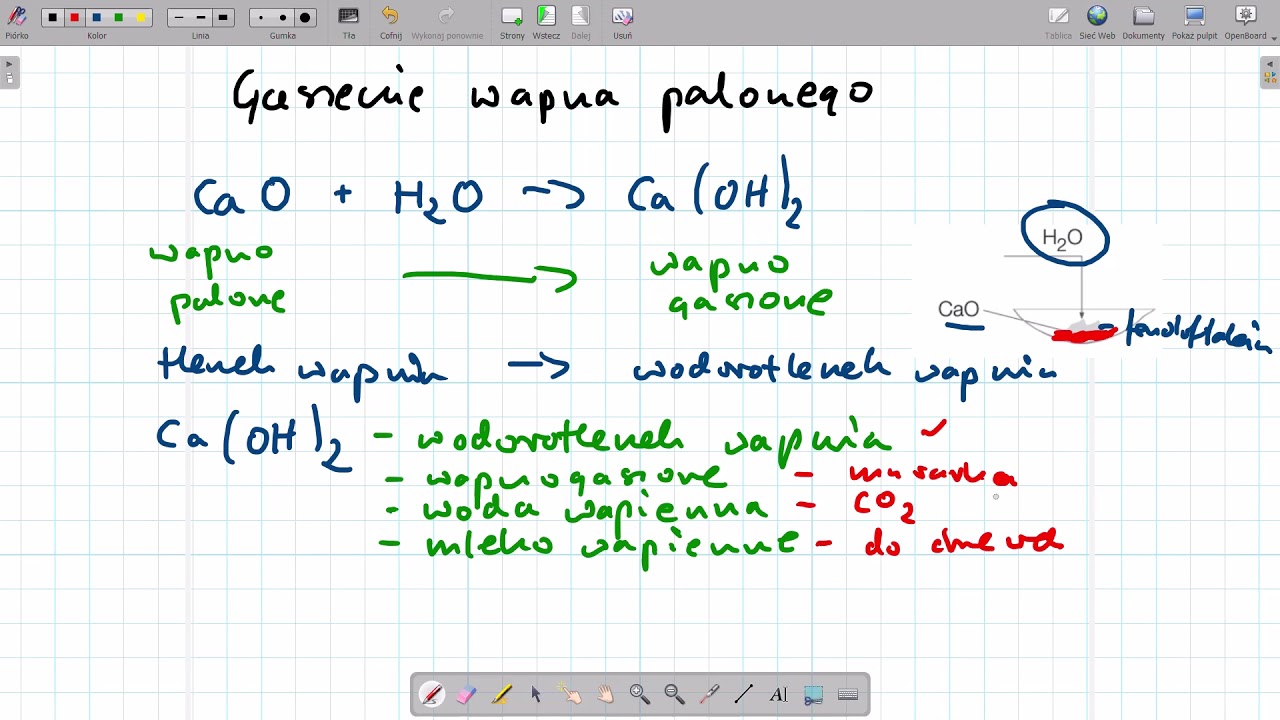 Piórko Kolor Linia Gumka Tła Cofnij Wykonaj ponownie Strony Wstecz Dalej Usuń Tablica Sieć Web Dokumenty Pokaż pulpit OpenBoard
Gaszenie wapna palonego
CaO + H₂O -> Ca(OH)₂
wapno palone
wapno gaszone
H₂O
CaO
- fenoloftaleina
tlenek wapnia -> wodorotlenek wapnia
Ca(OH)₂ - wodorotlenek wapnia ✓
- wapno gaszone - murarka
- woda wapienna - CO₂
- mleko wapienne - do drzewek